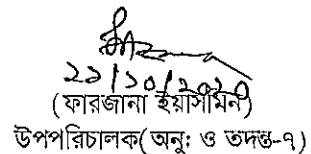 ২১/১০/২০২০
(ফারজানা ইয়াসমিন)
উপপরিচালক(অনু: ও তদন্ত-৭)